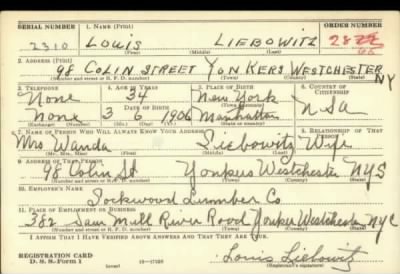 SERIAL NUMBER 1. NAME (Print) ORDER NUMBER
2310 LOUIS LIEBOWITZ
(First) (Middle) (Last)
2. ADDRESS (Print)
98 COLIN STREET YONKERS WESTCHESTER NY
(Number and street or R. F. D. number) (Town) (County) (State)
3. TELEPHONE 4. AGE IN YEARS 5. PLACE OF BIRTH 6. COUNTRY OF CITIZENSHIP
None 34 New York
DATE OF BIRTH (Town or county)
None 3 6 1906 Manhattan USA
(Exchange) (No.) (Mo.) (Day) (Yr.) (State or country)
7. NAME OF PERSON WHO WILL ALWAYS KNOW YOUR ADDRESS 8. RELATIONSHIP OF THAT PERSON
Mrs Wanda Liebowitz Wife
(Mr., Mrs., Miss) (First) (Middle) (Last)
9. ADDRESS OF THAT PERSON
98 Colin St Yonkers Westchester NYS
(Number and street or R. F. D. number) (Town) (County) (State)
10. EMPLOYER'S NAME
Lockwood Lumber Co
11. PLACE OF EMPLOYMENT OR BUSINESS
382 Saw Mill River Road Yonkers Westchester NYC
(Number and street or R. F. D. number) (Town) (County) (State)
I AFFIRM THAT I HAVE VERIFIED ABOVE ANSWERS AND THAT THEY ARE TRUE.
REGISTRATION CARD
D. S. S. Form 1 (over) 16—17105 Louis Liebowitz
(Registrant's signature)